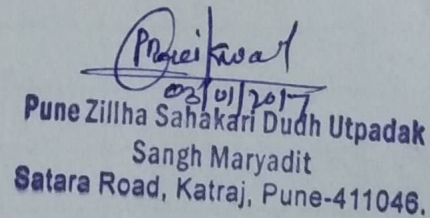 03/01/2017
Pune Zillha Sahakari Dudh Utpadak
Sangh Maryadit
Satara Road, Katraj, Pune-411046.